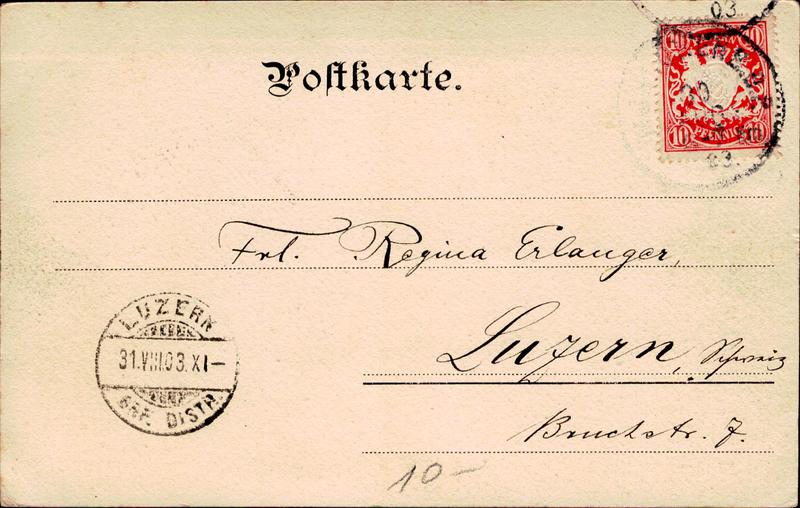 03
Postkarte.
10 10
10 PFENNIG 10
03.
Frl. Regina Erlanger,
LUZERN
31.VIII.03.XI–
BRF. DISTR.
Luzern, Schweiz
Bruchstr. 7.
10–